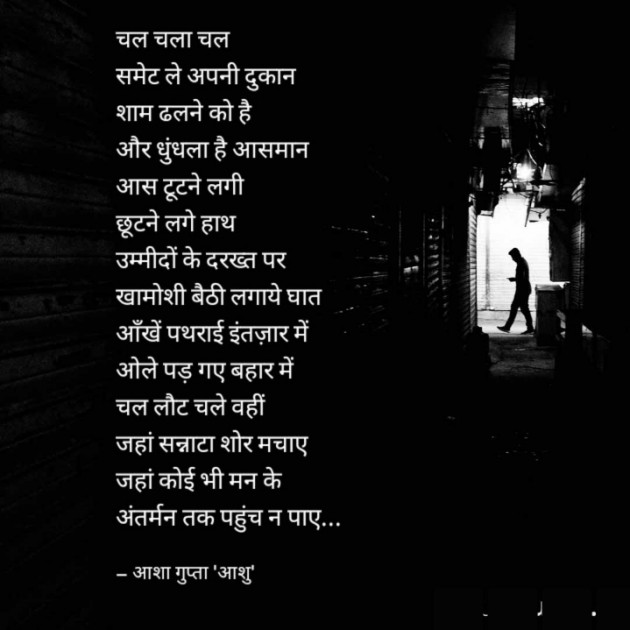 चल चला चल
समेट ले अपनी दुकान
शाम ढलने को है
और धुंधला है आसमान
आस टूटने लगी
छूटने लगे हाथ
उम्मीदों के दरख्त पर
खामोशी बैठी लगाये घात
आँखें पथराई इंतज़ार में
ओले पड़ गए बहार में
चल लौट चले वहीं
जहां सन्नाटा शोर मचाए
जहां कोई भी मन के
अंतर्मन तक पहुंच न पाए...
– आशा गुप्ता 'आशु'